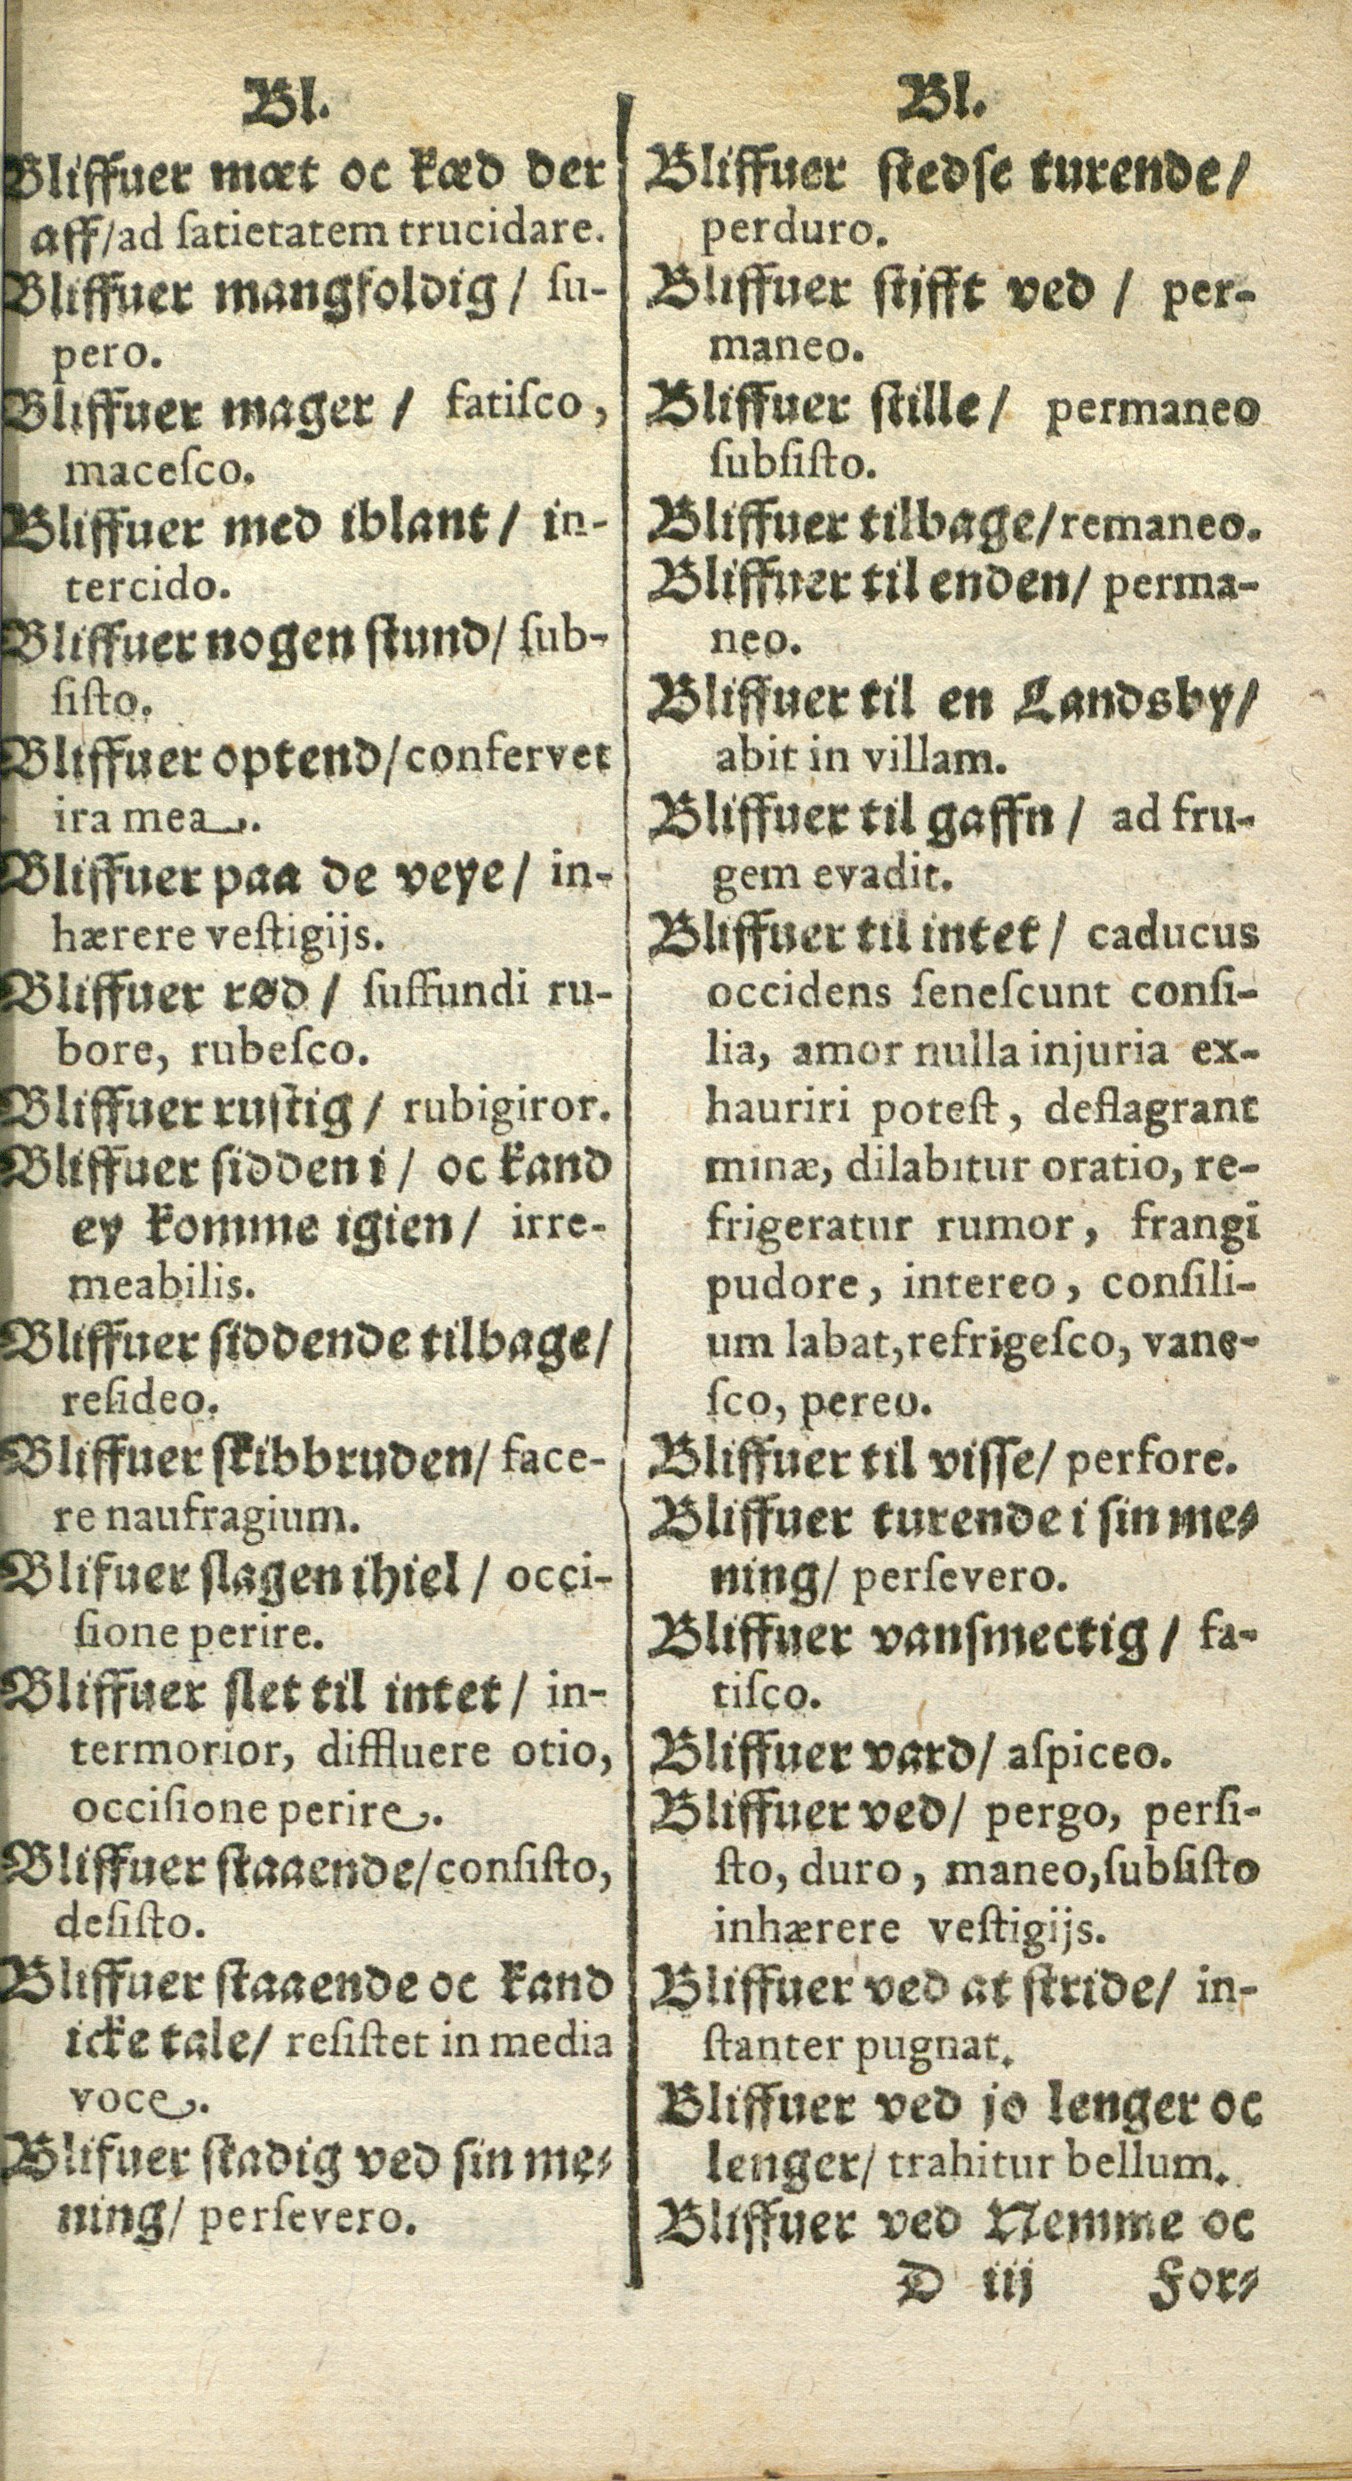 Bl.
Bliffuer mæt oc kæd der
aff/ad ſatietatem trucidare.
Bliffuer mangfoldig / ſu-
pero.
Bliffuer mager / fatiſco,
maceſco.
Bliffuer med iblant / in-
tercido.
Bliffuer nogen ſtund/ ſub-
ſiſto.
Bliffuer optend/confervet
ira mea.
Bliffuer paa de veye/ in-
hærere veſtigijs.
Bliffuer rød / ſuffundi ru-
bore, rubeſco.
Bliffuer ruſtig / rubigiror.
Bliffuer ſidden i / oc kand
ey komme igien/ irre-
meabilis.
Bliffuer ſiddende tilbage/
reſideo.
Bliffuer ſkibbruden/ face-
re naufragium.
Blifuer ſlagen ihiel / occi-
ſione perire.
Bliffuer ſlet til intet/ in-
termorior, diffluere otio,
occiſione perire.
Bliffuer ſtaaende/conſiſto,
deſiſto.
Bliffuer ſtaaende oc kand
icke tale/ reſiſtet in media
voce.
Blifuer ſtadig ved ſin me-
ning/ perſevero.
Bl.
Bliffuer ſtedſe turende/
perduro.
Bliffuer ſtjfft ved / per-
maneo.
Bliffuer ſtille/ permaneo
ſubſiſto.
Bliffuer tilbage/remaneo.
Bliffuer til enden/ perma-
neo.
Bliffuer til en Landsby/
abit in villam.
Bliffuer til gaffn / ad fru-
gem evadit.
Bliffuer til intet/ caducus
occidens ſeneſcunt conſi-
lia, amor nulla injuria ex-
hauriri poteſt, deflagrant
minæ, dilabitur oratio, re-
frigeratur rumor, frangi
pudore, intereo, conſili-
um labat,refrigeſco, vane-
ſco, pereo.
Bliffuer til viſſe/ perfore.
Bliffuer turende i ſin me-
ning/ perſevero.
Bliffuer vanſmectig / fa-
tiſco.
Bliffuer vard/ aſpiceo.
Bliffuer ved/ pergo, perſi-
ſto, duro, maneo,ſubſiſto
inhærere veſtigijs.
Bliffuer ved at ſtride/ in-
ſtanter pugnat.
Bliffuer ved jo lenger oc
lenger/ trahitur bellum.
Bliffuer ved Nemme oc
D iij For-